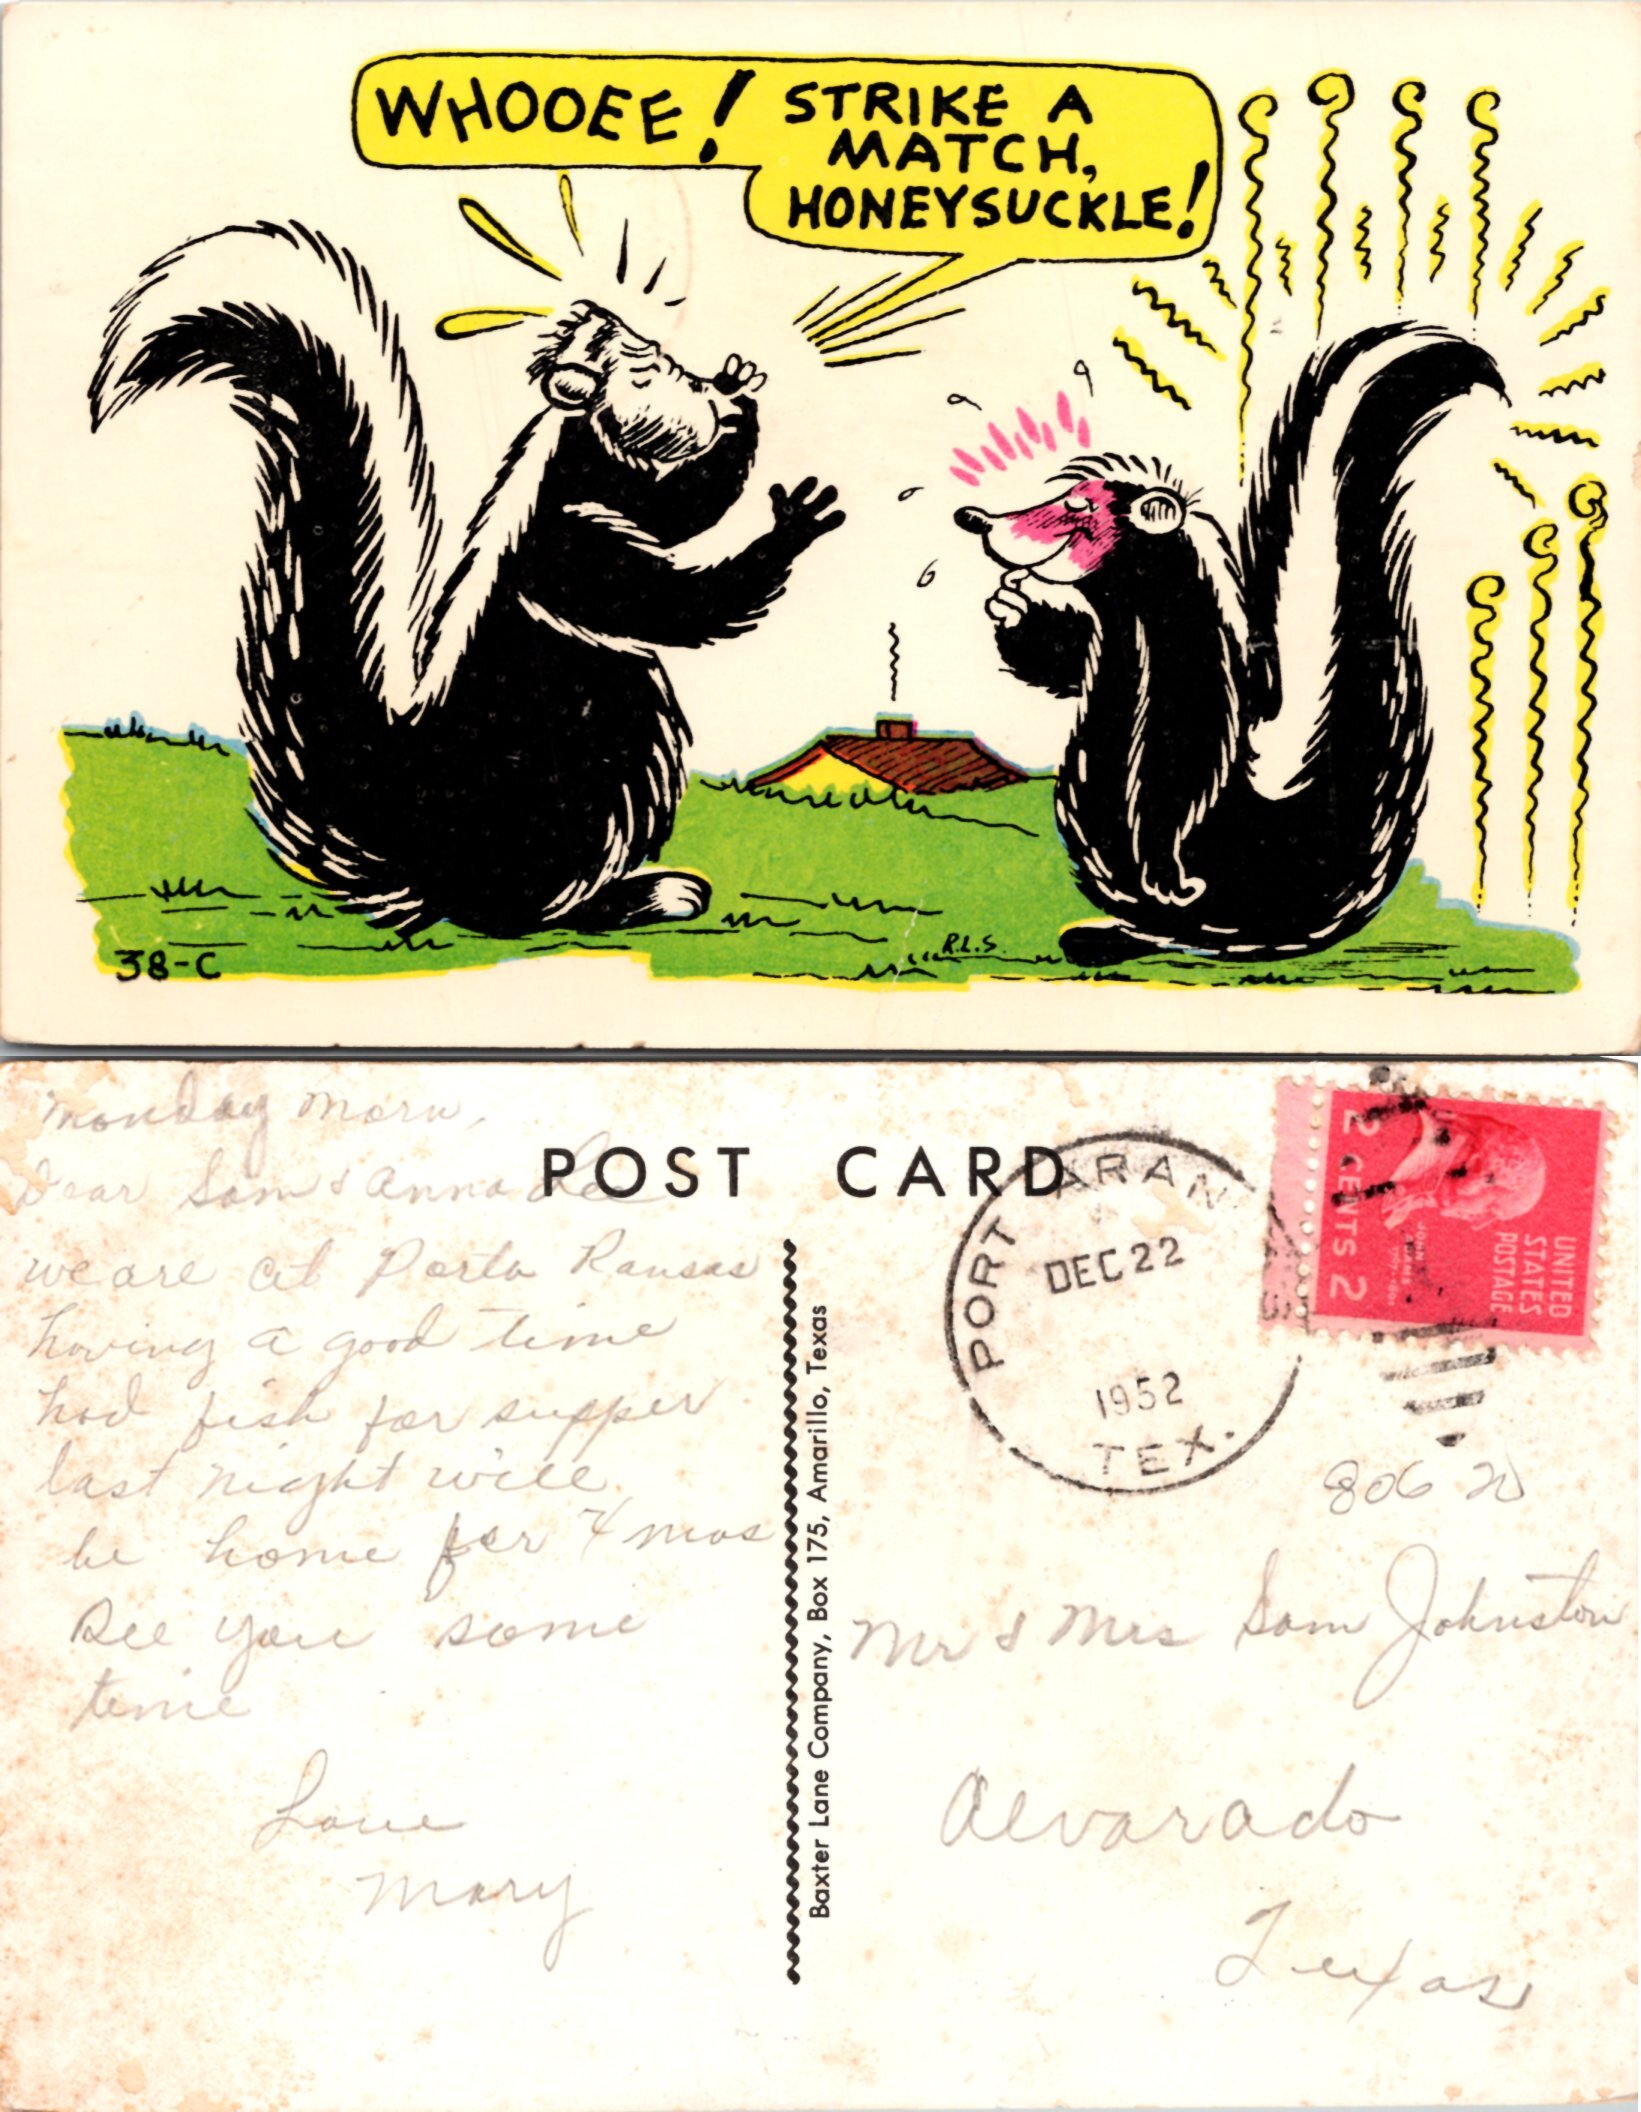 WHOOEE! STRIKE A
MATCH,
HONEYSUCKLE!
38-C
R.L.S.
Monday Morn,
Dear Sam & Anna Lee
we are at Porta Ransas
having a good time
had fish for supper
last night will
be home for Xmas
See you some
time
Love
Mary
POST CARD
Baxter Lane Company, Box 175, Amarillo, Texas
PORT ARAN
DEC 22
1952
TEX.
2 CENTS 2
UNITED
STATES
POSTAGE
806 20
Mr & Mrs Sam Johnston
Alvarado
Texas